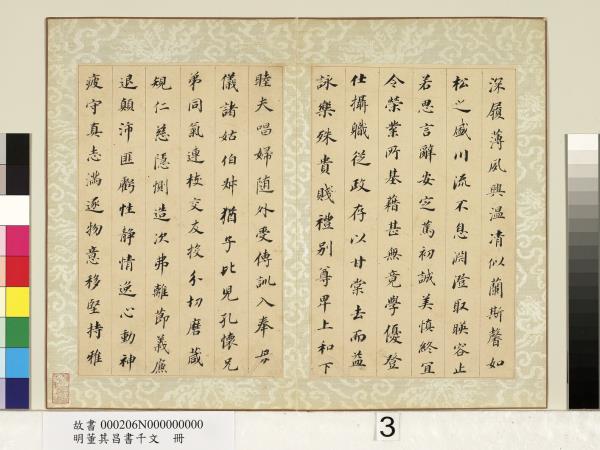 深履薄夙興温清似蘭斯馨如
松之盛川流不息淵澄取暎容止
若思言辭安定篤初誠美慎終宜
令榮業所基藉甚無竟學優登
仕攝職從政存以甘棠去而益
詠樂殊貴賤禮別尊卑上和下
睦夫唱婦隨外受傅訓入奉母
儀諸姑伯叔猶子比兒孔懷兄
弟同氣連枝交友投分切磨箴
規仁慈隱惻造次弗離節義廉
退顛沛匪虧性靜情逸心動神
疲守真志滿逐物意移堅持雅
故書 000206N000000000
明董其昌書千文 冊
3